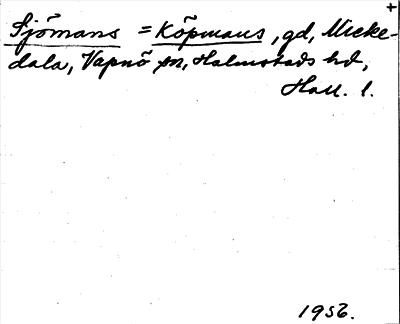 +
Sjömans = Köpmans, gd, Micke-
dala, Vapnö sn, Halmstads hd,
Hall. l.
1956.